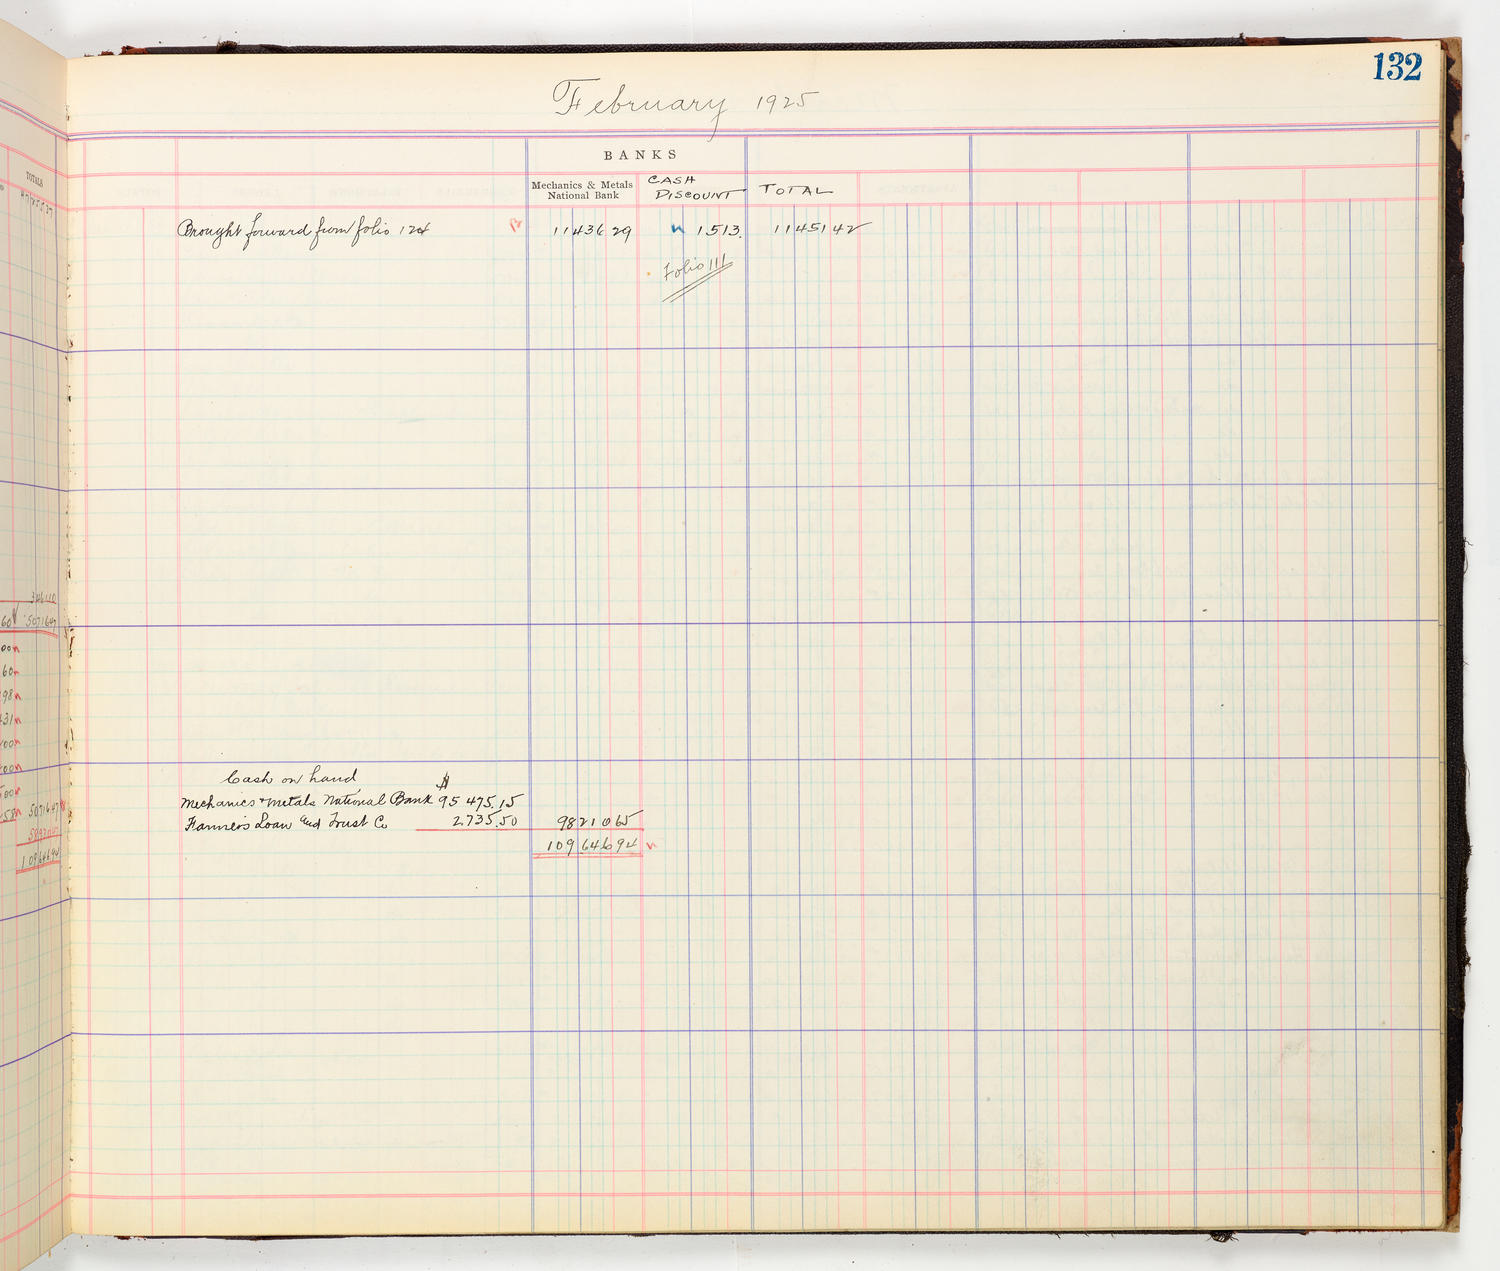 132
February 1925
BANKS
TOTALS
Mechanics & Metals National Bank
CASH DISCOUNT
TOTAL
Brought forward from folio 124 11436 29 1513. 11451 42
Folio 111
3461.10
50716.47
Cash on hand $
Mechanics & Metals National Bank 95 475.15
Farmers Loan and Trust Co 2.735.50 98210 65
109646 94
50716.47
109646.94